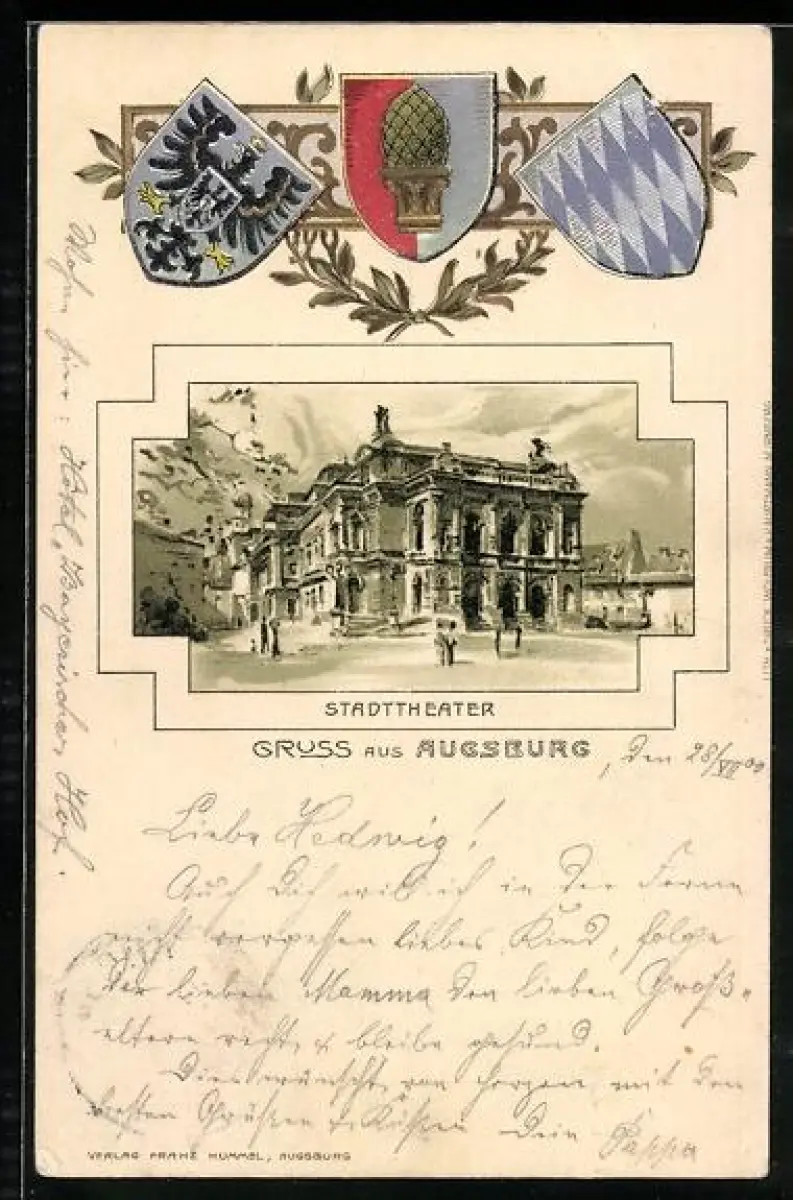 STADTTHEATER
GRUSS AUS AUGSBURG, den 28/VII 00
Liebe Hedwig!
Auch Dich will ich in der Ferne
nicht vergessen liebes Kind, folge
der lieben Mamma den lieben Groß-
eltern recht, & bleibe gesund.
Dies wünscht von Herzen mit den
besten Grüßen & Küssen Dein Pappa
VERLAG FRANZ HUMMEL, AUGSBURG
Wohne hier: Hotel „Bayerischer Hof.